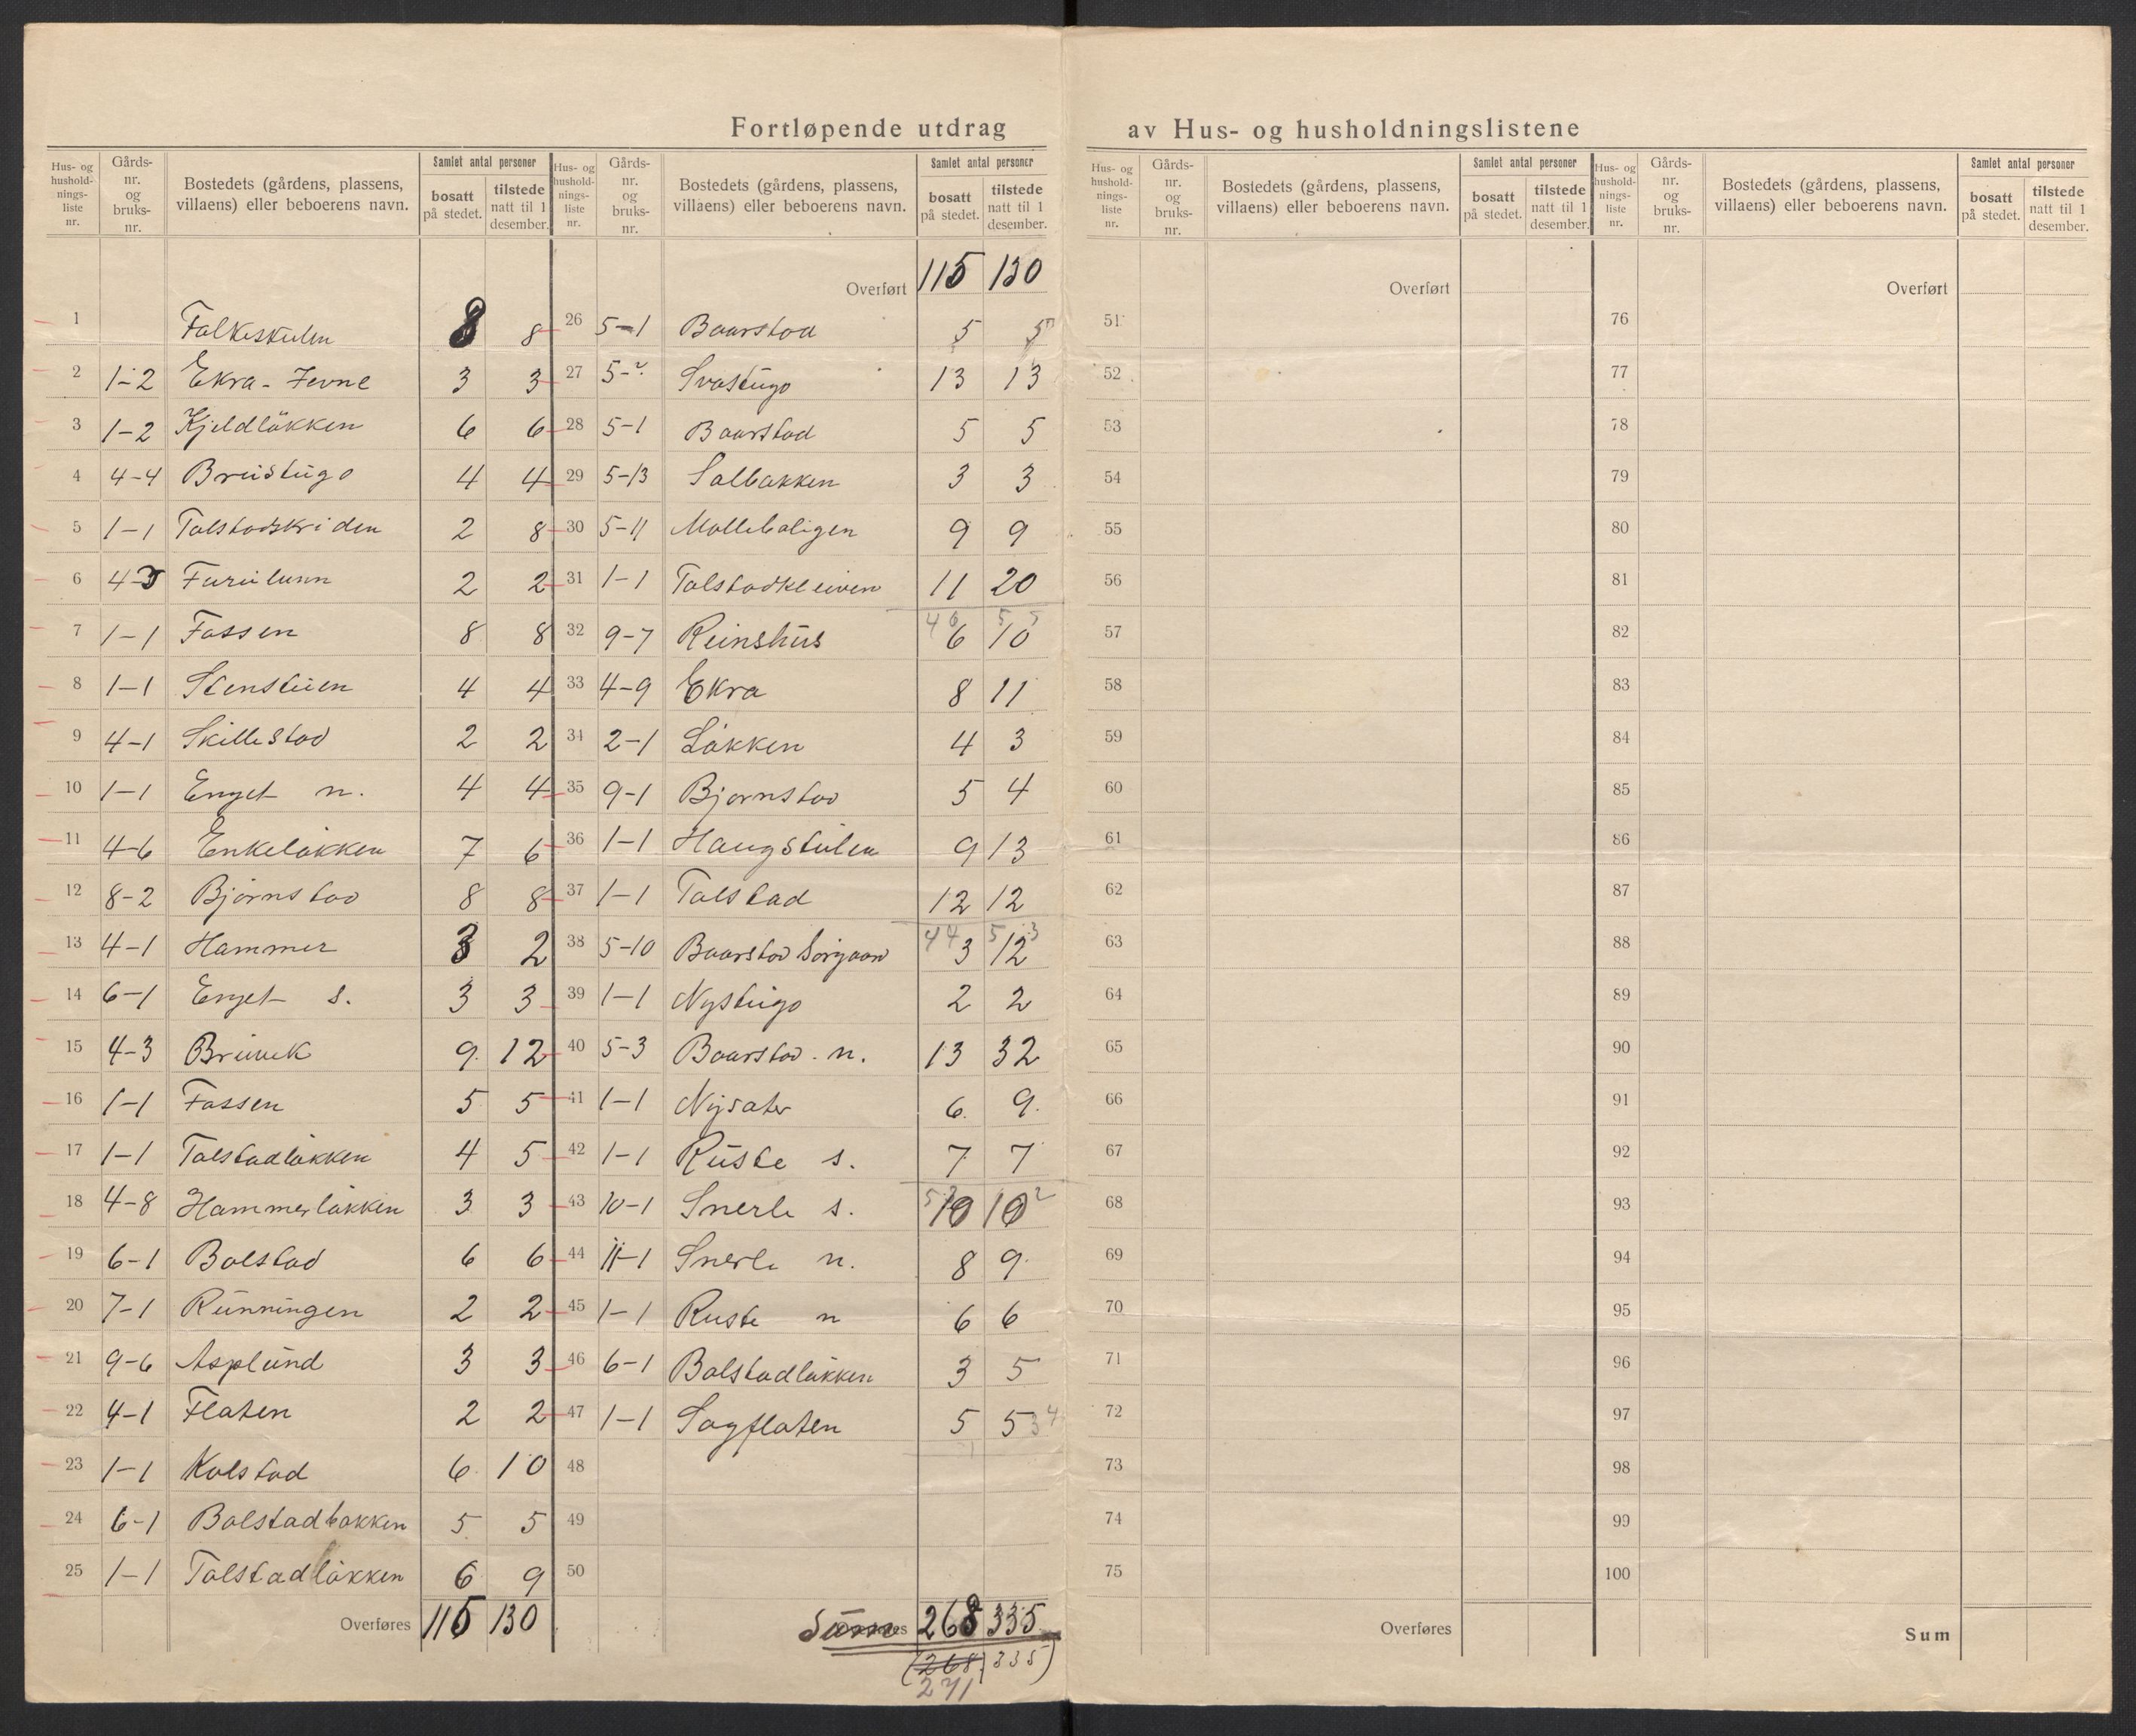 Fortløpende utdrag av Hus- og husholdningslistene
Hus- og hushold-nings-liste nr. Gårds-nr. og bruks-nr. Bostedets (gårdens, plassens, villaens) eller beboerens navn. Samlet antal personer bosatt på stedet. tilstede natt til 1 desember.
1 Folkeskulen 8 8
2 1-2 Ekra - Jevne 3 3
3 1-2 Kjeldløkken 6 6
4 4-4 Bruistugo 4 4
5 1-1 Tolstadskriden 2 8
6 4-3 Furulunn 2 2
7 1-1 Fossen 8 8
8 1-1 Stenstuen 4 4
9 4-1 Skillestad 2 2
10 1-1 Enget n. 4 4
11 4-6 Enkeløkken 7 6
12 8-2 Bjørnstad 8 8
13 4-1 Hammer 3 2
14 6-1 Enget s. 3 3
15 4-3 9 12
16 1-1 Fossen 5 5
17 1-1 Tolstadløkken 4 5
18 4-8 Hammerløkken 3 3
19 6-1 Bolstad 6 6
20 7-1 Runningen 2 2
21 9-6 Asplund 3 3
22 4-1 Flaten 2 2
23 1-1 Kolstad 6 10
24 6-1 Bolstadbakken 5 5
25 1-1 Tolstadløkken 6 9
Overføres 115 130
Hus- og hushold-nings-liste nr. Gårds-nr. og bruks-nr. Bostedets (gårdens, plassens, villaens) eller beboerens navn. Samlet antal personer bosatt på stedet. tilstede natt til 1 desember.
Overført 115 130
26 5-1 Baarstad 5 5
27 5-2 Svastugo 13 13
28 5-1 Baarstad 5 5
29 5-13 Solbakken 3 3
30 5-11 Mølleboligen 9 9
31 1-1 Tolstadkleiven 11 20
32 9-7 Reinshus 6 10
33 4-9 Ekra 8 11
34 2-1 Løkken 4 3
35 9-1 Bjørnstad 5 4
36 1-1 Haugstulen 9 13
37 1-1 Tolstad 12 12
38 5-10 Baarstad Sørgaard 3 12
39 1-1 Nystugo 2 2
40 5-3 Baarstad n. 13 32
41 1-1 Nysæter 6 9
42 1-1 Ruste s. 7 7
43 10-1 Snerle s. 10 10
44 11-1 Snerle n. 8 9
45 1-1 Ruste n 6 6
46 6-1 Bolstadløkken 3 5
47 1-1 Sagflaten 5 5
48
49
50
Sum 268 335
(268 335)
271
Hus- og hushold-nings-liste nr. Gårds-nr. og bruks-nr. Bostedets (gårdens, plassens, villaens) eller beboerens navn. Samlet antal personer bosatt på stedet. tilstede natt til 1 desember.
Overført
51
52
53
54
55
56
57
58
59
60
61
62
63
64
65
66
67
68
69
70
71
72
73
74
75
Overføres
Hus- og hushold-nings-liste nr. Gårds-nr. og bruks-nr. Bostedets (gårdens, plassens, villaens) eller beboerens navn. Samlet antal personer bosatt på stedet. tilstede natt til 1 desember.
Overført
76
77
78
79
80
81
82
83
84
85
86
87
88
89
90
91
92
93
94
95
96
97
98
99
100
Sum